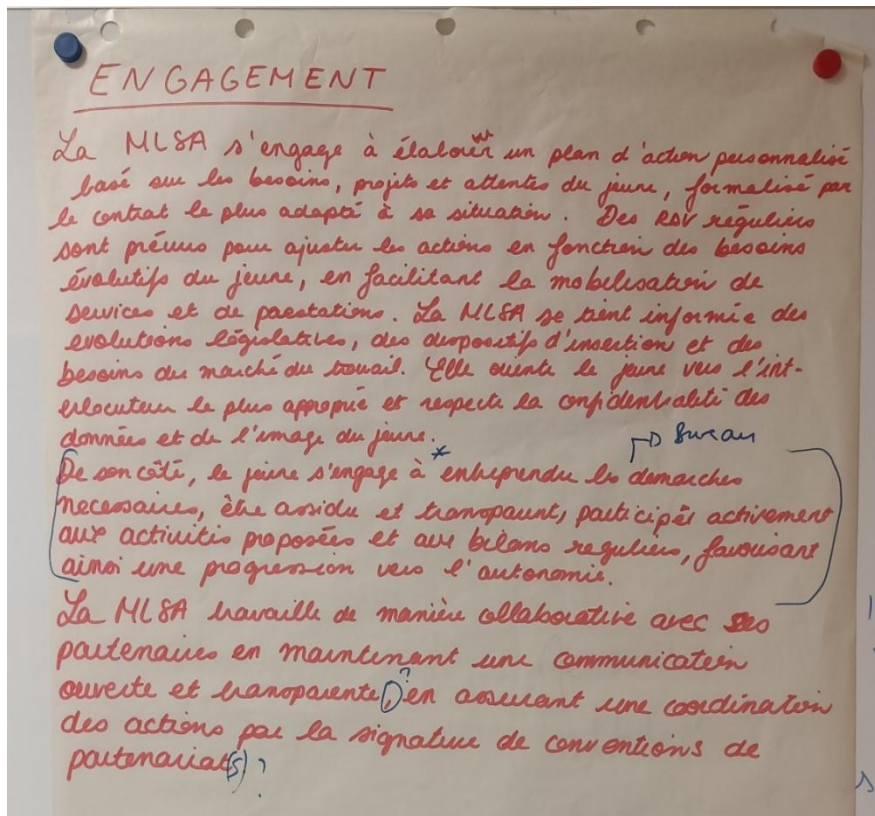 ENGAGEMENT
La MLSA s'engage à élaborer un plan d'action personnalisé
basé sur les besoins, projets et attentes du jeune, formalisé par
le contrat le plus adapté à sa situation. Des RDV réguliers
sont prévus pour ajuster les actions en fonction des besoins
évolutifs du jeune, en facilitant la mobilisation de
services et de prestations. La MLSA se tient informée des
evolutions législatives, des dispositifs d'insertion et des
besoins du marché du travail. Elle oriente le jeune vers l'int-
erlocuteur le plus approprié et respecte la confidentialité des
données et de l'image du jeune.
Bureau
De son côté, le jeune s'engage à * entreprendre les demarches
necessaires, être assidu et transparent, participer activement
aux activités proposées et aux bilans reguliers, favorisant
ainsi une progression vers l'autonomie.
La MLSA travaille de manière collaborative avec ses
partenaires en maintenant une communication
ouverte et transparente, ? en assurant une coordination
des actions par la signature de conventions de
partenariat(s) ?